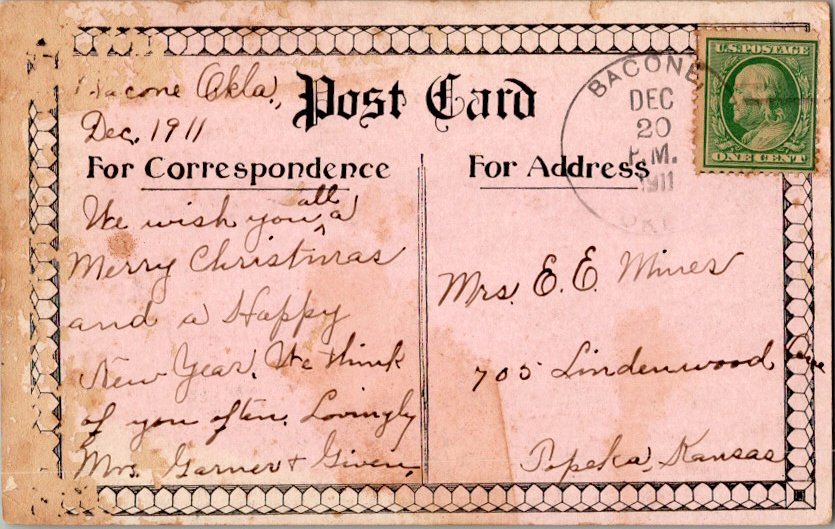 Bacone Okla.,
Dec. 1911
Post Card
For Correspondence
We wish you all a
Merry Christmas
and a Happy
New Year. We think
of you often. Lovingly
Mrs. Garner & Given.
For Address
Mrs. E. E. Mines
705 Lindenwood
Topeka, Kansas
BACONE
DEC
20
P.M.
1911
OKL
U.S. POSTAGE
ONE CENT